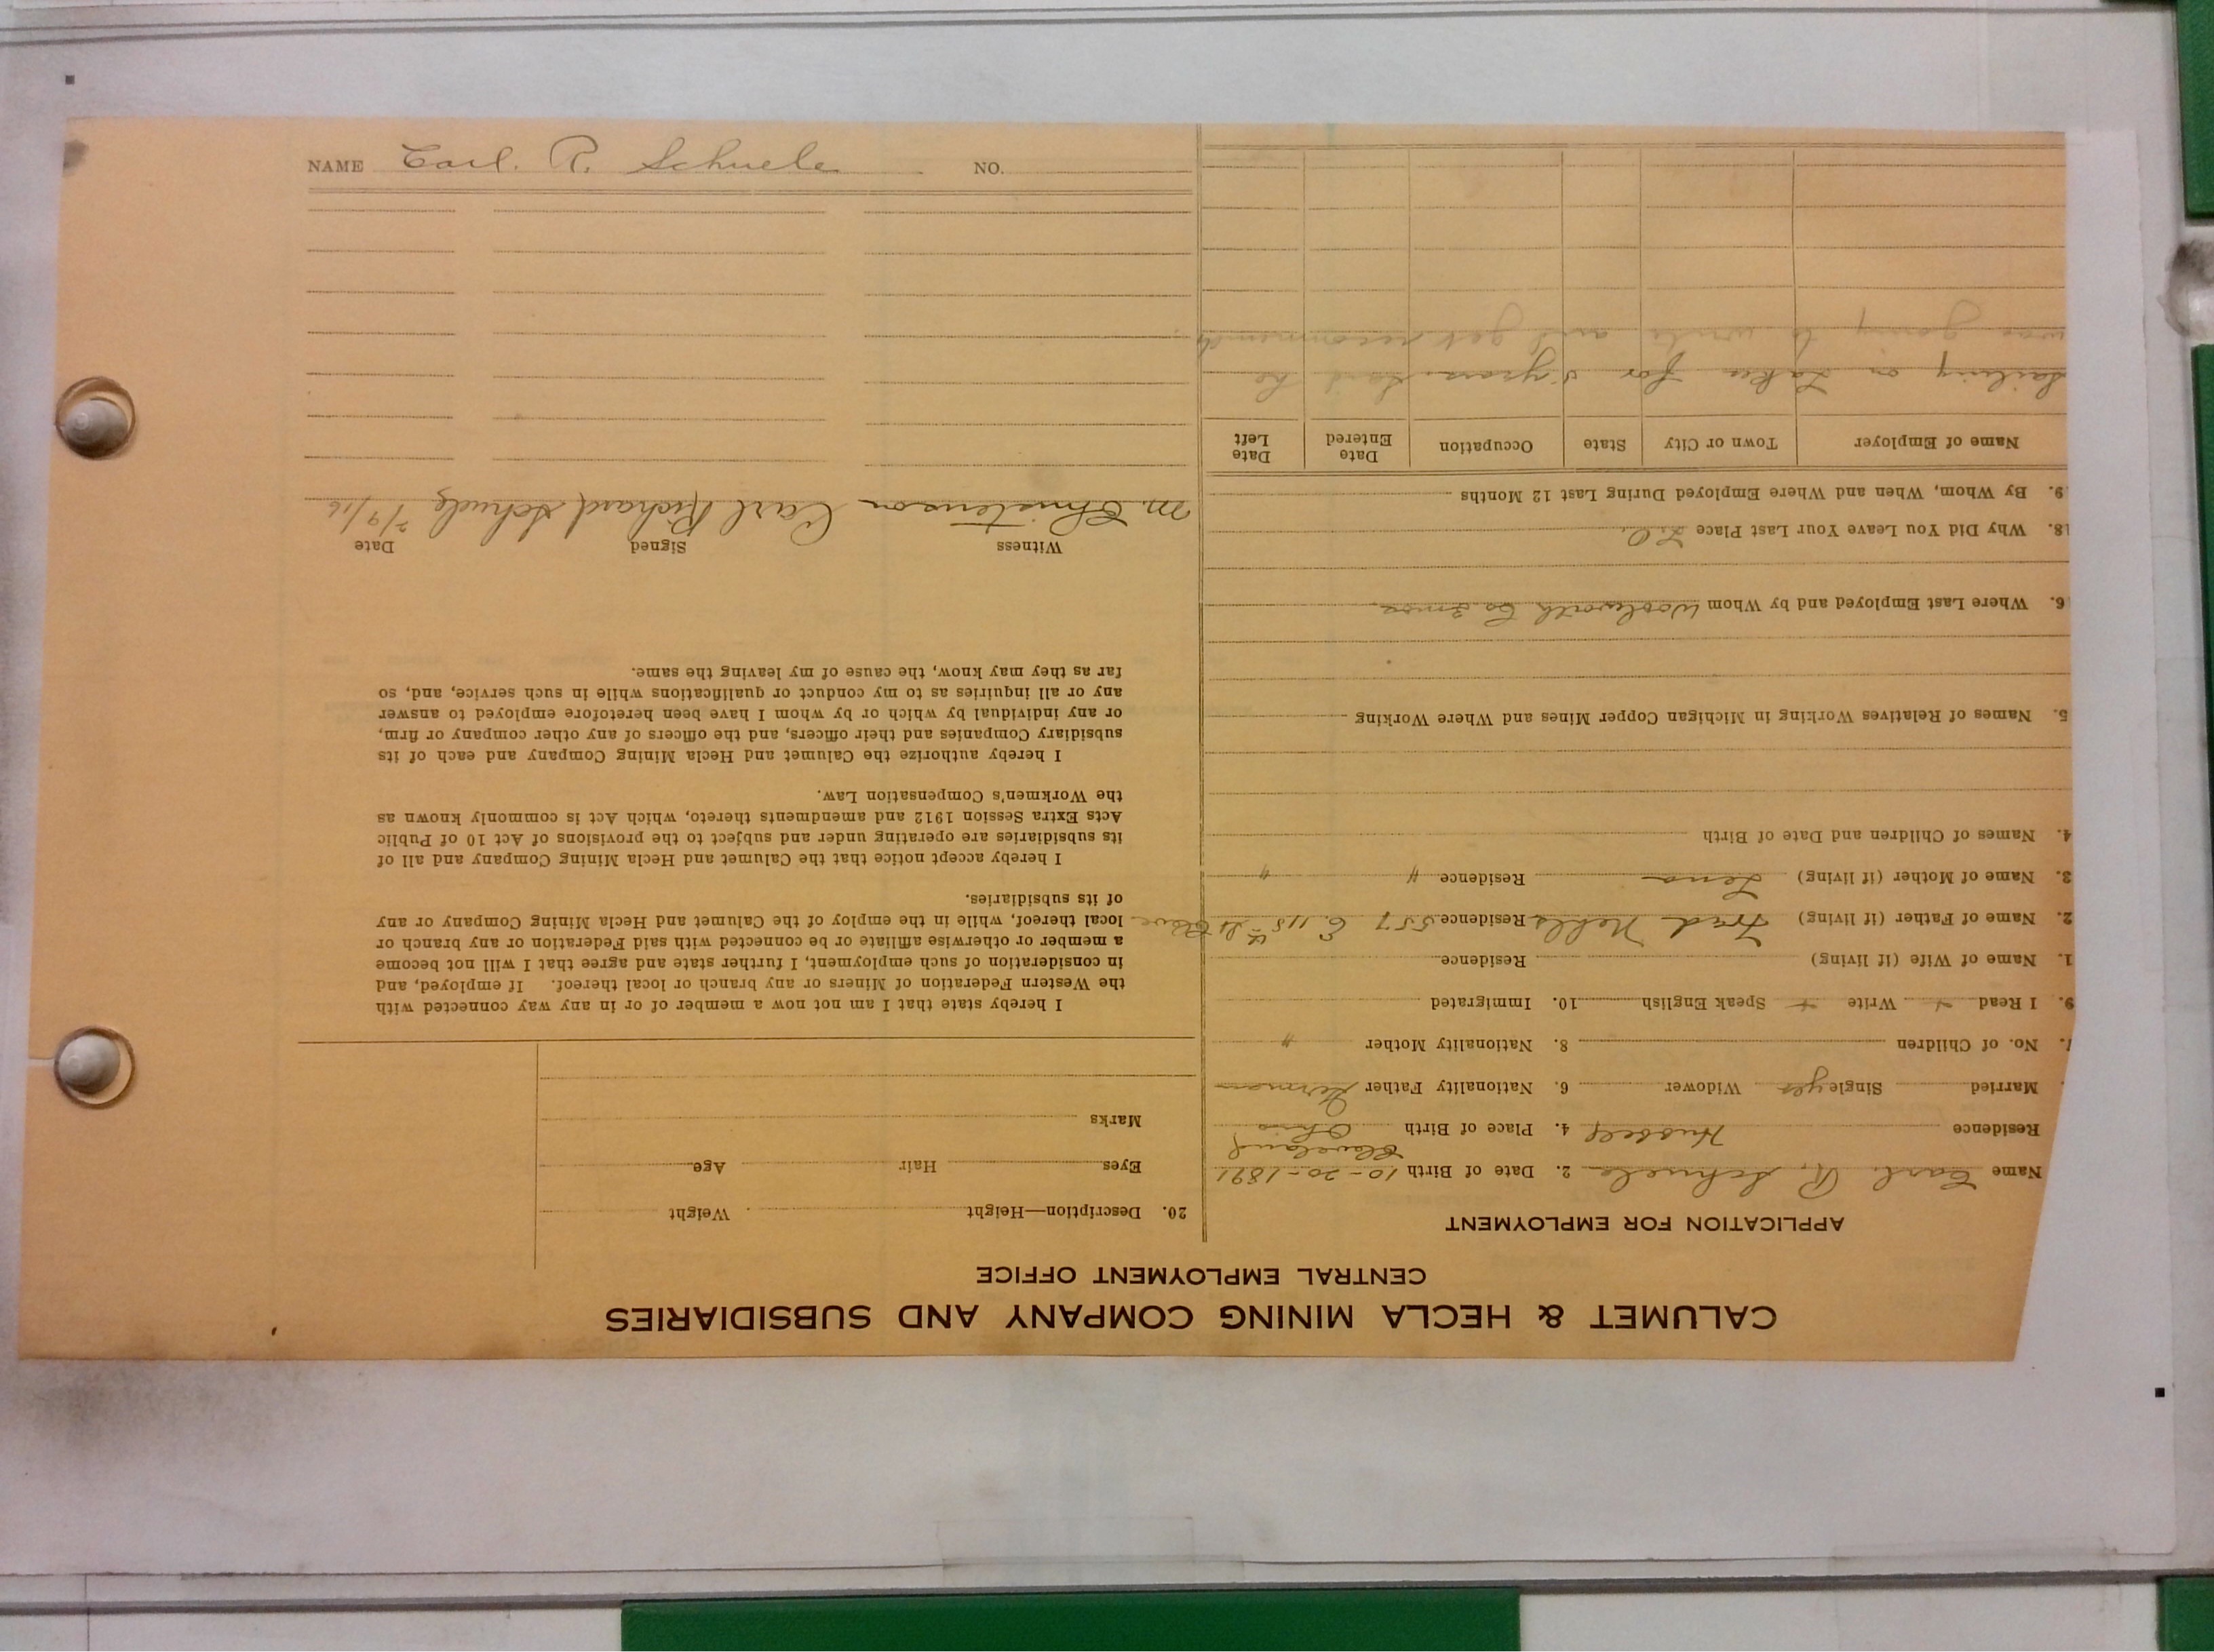 CALUMET & HECLA MINING COMPANY AND SUBSIDIARIES
CENTRAL EMPLOYMENT OFFICE
APPLICATION FOR EMPLOYMENT
Name Carl. R. Schuele 2. Date of Birth 10-20-1891
Cleveland
Residence Hussell 4. Place of Birth Ohio
Married Single yes Widower 6. Nationality Father German
7. No. of Children 8. Nationality Mother "
9. I Read + Write + Speak English 10. Immigrated
1. Name of Wife (if living) Residence
2. Name of Father (if living) Fred Nehls Residence 557 E. 118th St Cleve
3. Name of Mother (if living) Lena Residence " "
4. Names of Children and Date of Birth
5. Names of Relatives Working in Michigan Copper Mines and Where Working
6. Where Last Employed and by Whom Woolworth Co 3 mos
18. Why Did You Leave Your Last Place L.O.
19. By Whom, When and Where Employed During Last 12 Months
Name of Employer Town or City State Occupation Date Entered Date Left
Sailing on Lakes for 5 years. Said he
was going to write and get recommends
20. Description—Height Weight
Eyes Hair Age
Marks
I hereby state that I am not now a member of or in any way connected with
the Western Federation of Miners or any branch or local thereof. If employed, and
in consideration of such employment, I further state and agree that I will not become
a member or otherwise affiliate or be connected with said Federation or any branch or
local thereof, while in the employ of the Calumet and Hecla Mining Company or any
of its subsidiaries.
I hereby accept notice that the Calumet and Hecla Mining Company and all of
its subsidiaries are operating under and subject to the provisions of Act 10 of Public
Acts Extra Session 1912 and amendments thereto, which Act is commonly known as
the Workmen's Compensation Law.
I hereby authorize the Calumet and Hecla Mining Company and each of its
subsidiary Companies and their officers, and the officers of any other company or firm,
or any individual by which or by whom I have been heretofore employed to answer
any or all inquiries as to my conduct or qualifications while in such service, and, so
far as they may know, the cause of my leaving the same.
Witness Signed Date
M. Christenson Carl Richard Schuele 7/9/16
NAME Carl. R. Schuele NO.